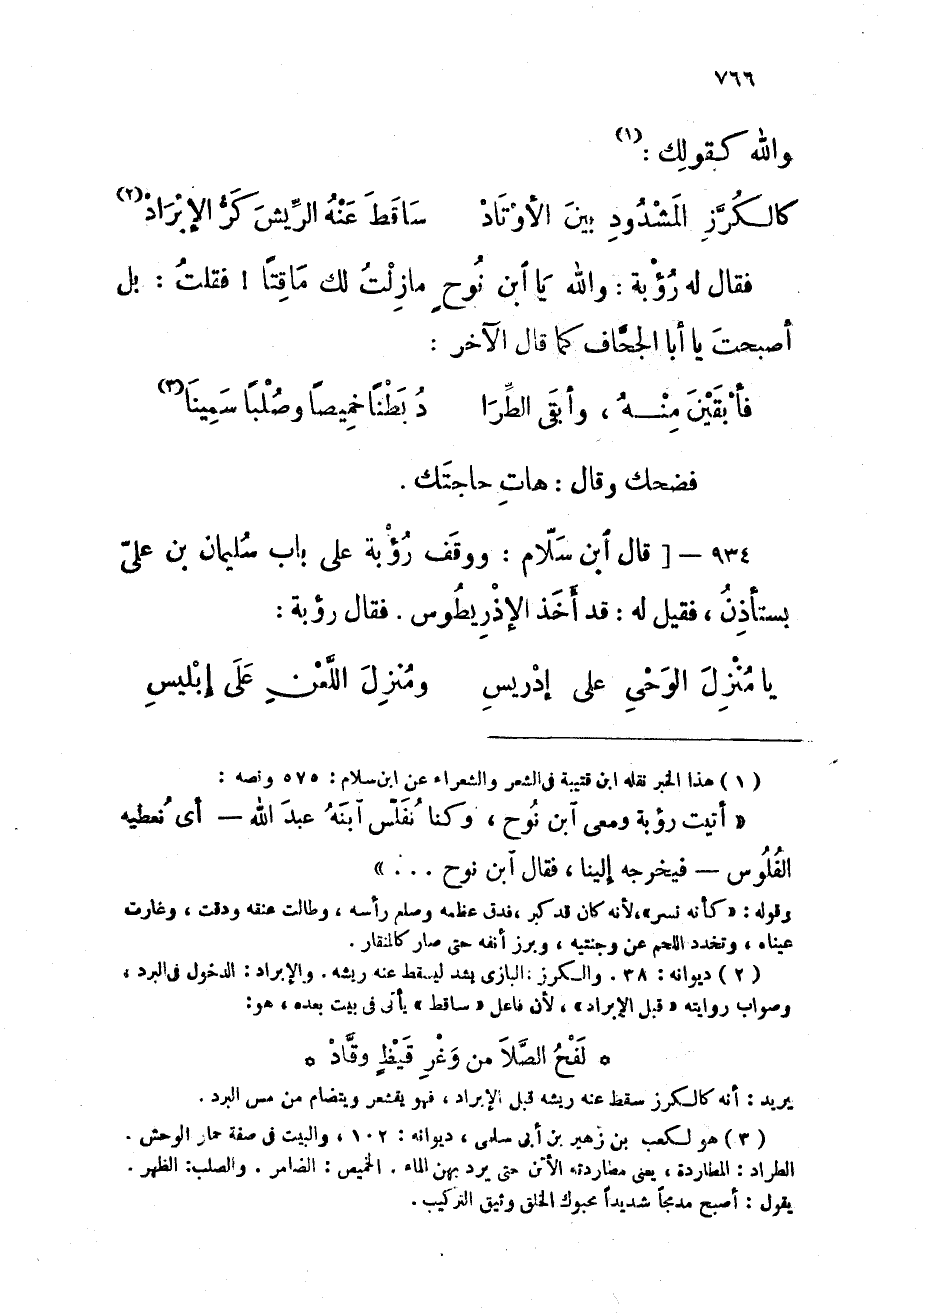 ٧٦٦
والله كقولِك :(١)
كالكُرَّزِ المَشْدُودِ بينَ الأوْتَادْ سَاقَطَ عَنْهُ الرِّيشَ كَرُّ الإبْرَادْ(٢)
فقال له رُؤْبة : والله يَا ٱبن نُوحٍ مازِلْتُ لك مَاقِتًا ! فقلتُ : بل
أصبحتَ يا أبا الجحَّاف كما قال الآخر :
فأبْقَيْنَ مِنْـهُ ، وأبقَى الطِّرَا دُ بَطْنًا خَمِيصاً وصُلْباً سَمِينَا(٣)
فضحك وقال : هاتِ حاجتَك .
٩٣٤ — [ قال ٱبن سَلّام : ووقَف رُؤْبة على باب سُليمان بن علىّ
يستأذِنُ ، فقيل له : قد أَخَذ الإذْرِيطُوس . فقال رؤبة :
يا مُنْزِلَ الوَحْىِ على إدْريسِ ومُنْزِلَ اللَّعْنِ عَلَى إبْليسِ
( ١ ) هذا الخبر نقله ابن قتيبة فى الشعر والشعراء عن ابن سلام : ٥٧٥ ونصه :
« أتيت رؤبة ومعى ٱبن نُوح ، وكنا نُفَلّس ٱبنَهُ عبدَ الله — أى نُعطيه
الفُلُوس — فيخرجه إلينا ، فقال ٱبن نوح . . . »
وقوله : « كأنه نسر » ، لأنه كان قد كبر ، فدق عظمه وصلع رأسه ، وطالت عنقه ودقت ، وغارت
عيناه ، وتخدد اللحم عن وجنتيه ، وبرز أنفه حتى صار كالمنقار .
( ٢ ) ديوانه : ٣٨ . والكرز : البازى يشد ليسقط عنه ريشه . والإبراد : الدخول فى البرد ،
وصواب روايته « قبل الإبراد » ، لأن فاعل « ساقط » يأتى فى بيت بعده ، هو :
* لَفْحُ الصَّلاَ من وَغْرِ قَيْظٍ وقَّادْ *
يريد : أنه كالكرز سقط عنه ريشه قبل الإبراد ، فهو يقشعر ويتضام من مس البرد .
( ٣ ) هو لكعب بن زهير بن أبى سلمى ، ديوانه : ١٠٢ ، والبيت فى صفة حمار الوحش .
الطراد : المطاردة ، يعنى مطاردته الأتن حتى يرد بهن الماء . الخميص : الضامر . والصلب : الظهر .
يقول : أصبح مدمجاً شديداً محبوك الخلق وثيق التركيب .